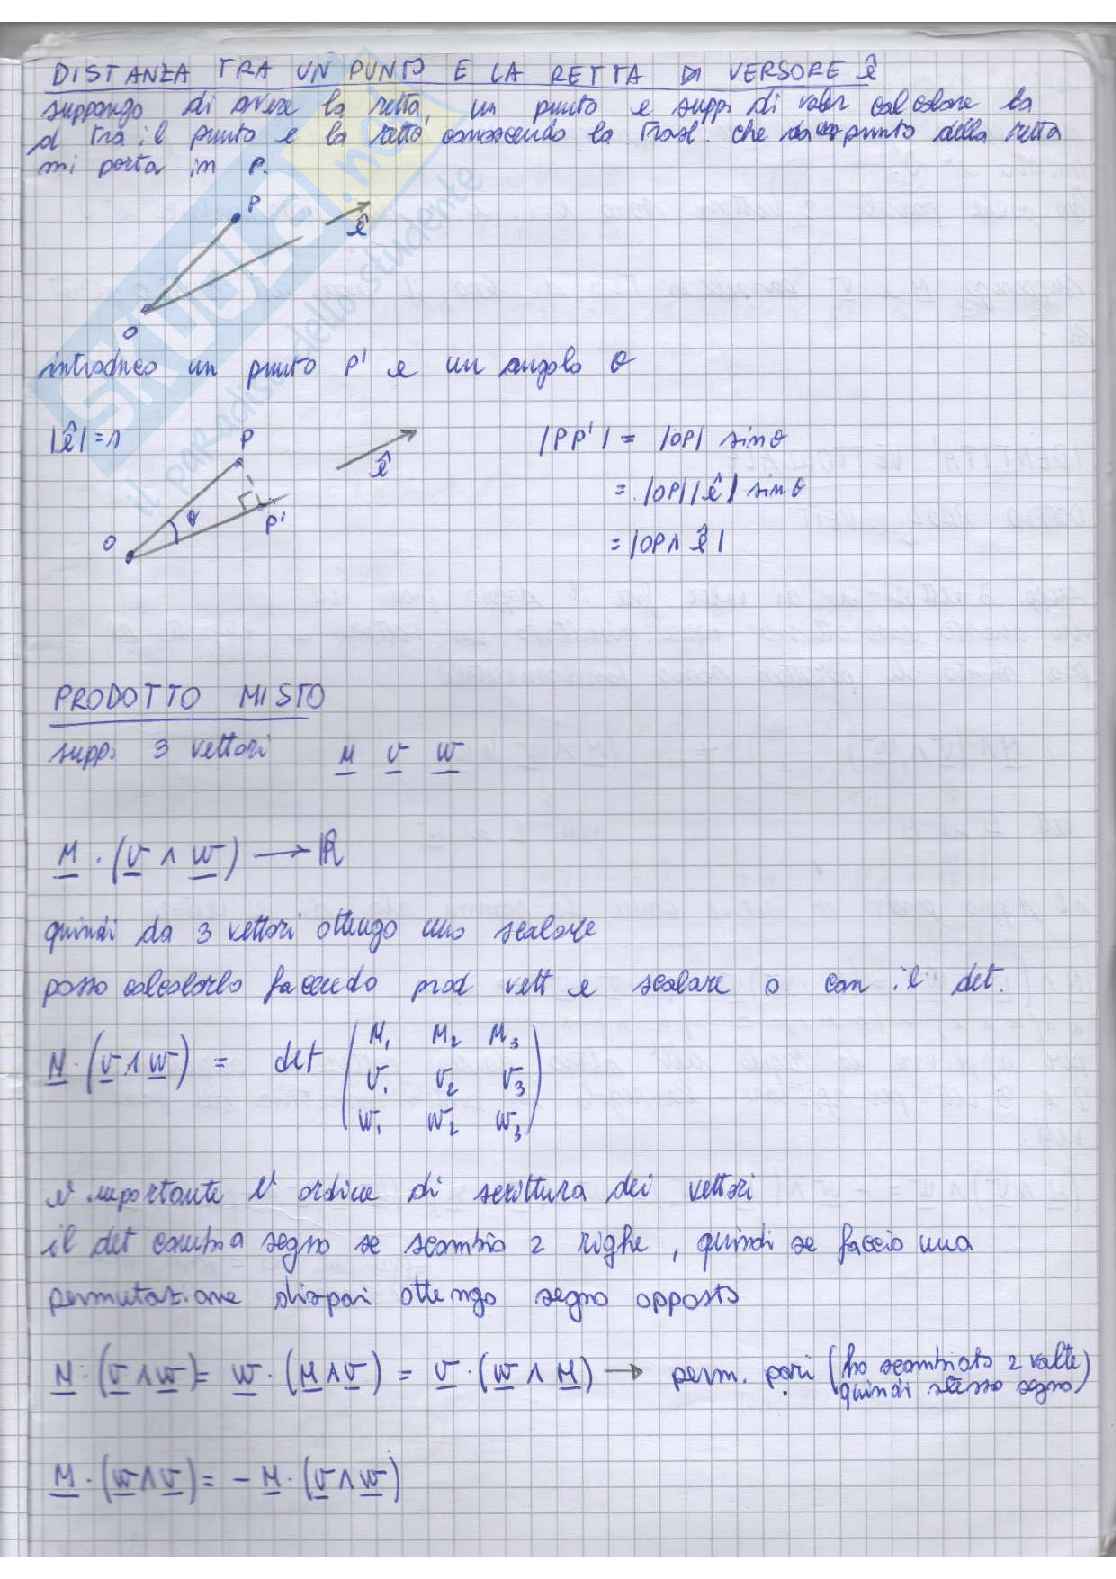 DISTANZA TRA UN PUNTO E LA RETTA DI VERSORE ê
suppongo di avere la retta, un punto e supp. di voler calcolare la
d tra il punto e la retta conoscendo la trasl. che da punto della retta
mi porta in P.
P
ê
O
introduco un punto P' e un angolo θ
|ê| = 1
P
ê
|PP'| = |OP| sinθ
= |OP||ê| sinθ
O
θ
P'
= |OP∧ ê|
PRODOTTO MISTO
supp. 3 vettori u v w
u · (v ∧ w) → ℝ
quindi da 3 vettori ottengo uno scalare
posso calcolarlo facendo prod vett e scalare o con il det.
u · (v ∧ w) = det ( u₁ u₂ u₃
v₁ v₂ v₃
w₁ w₂ w₃ )
è importante l'ordine di scrittura dei vettori
il det cambia segno se scambio 2 righe, quindi se faccio una
permutazione dispari ottengo segno opposto
u · (v ∧ w) = w · (u ∧ v) = v · (w ∧ u) → perm. pari (ho scambiato 2 volte
quindi stesso segno)
u · (w ∧ v) = - u · (v ∧ w)
STUDENTI.
il paradiso dello studente